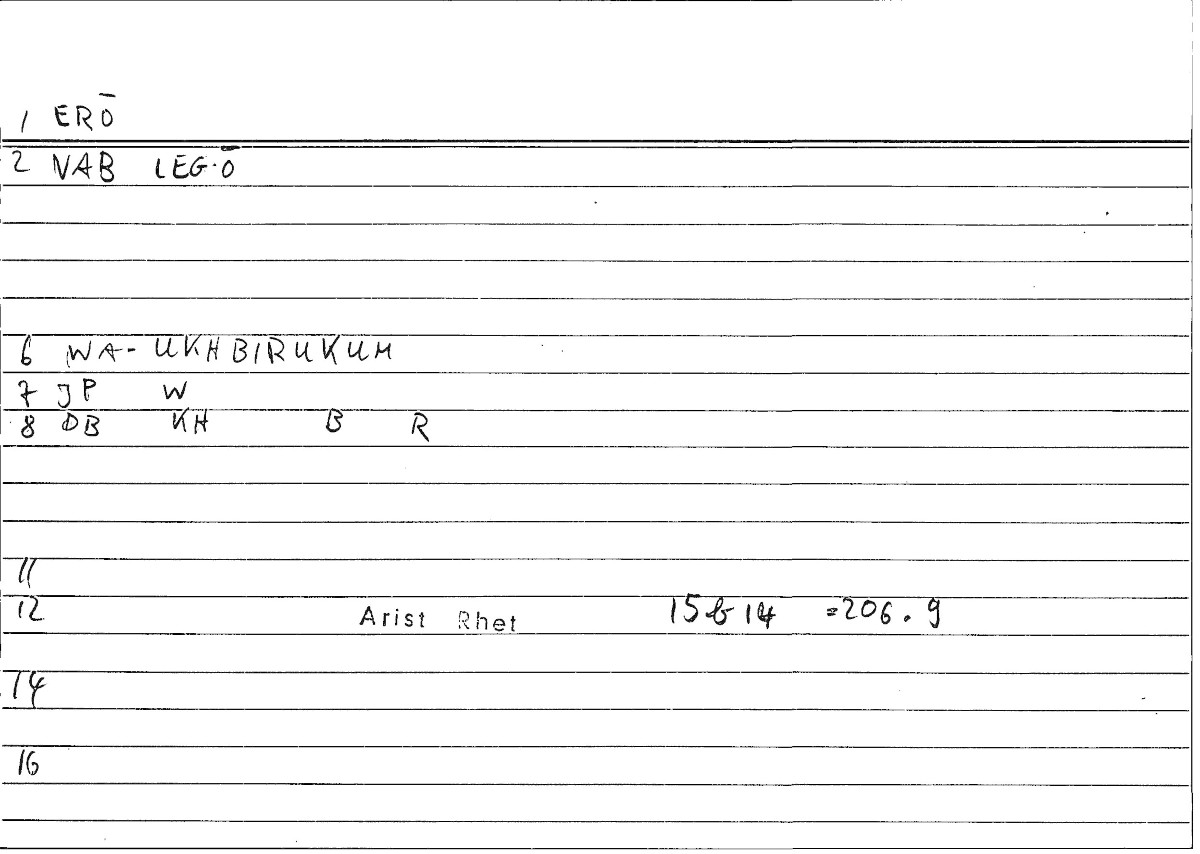 1 ERŌ
2 VAB LEG·Ō
6 WA- UKHBIRUKUM
7 JP W
8 DB KH B R
11
12 Arist Rhet 15b14 =206.9
14
16